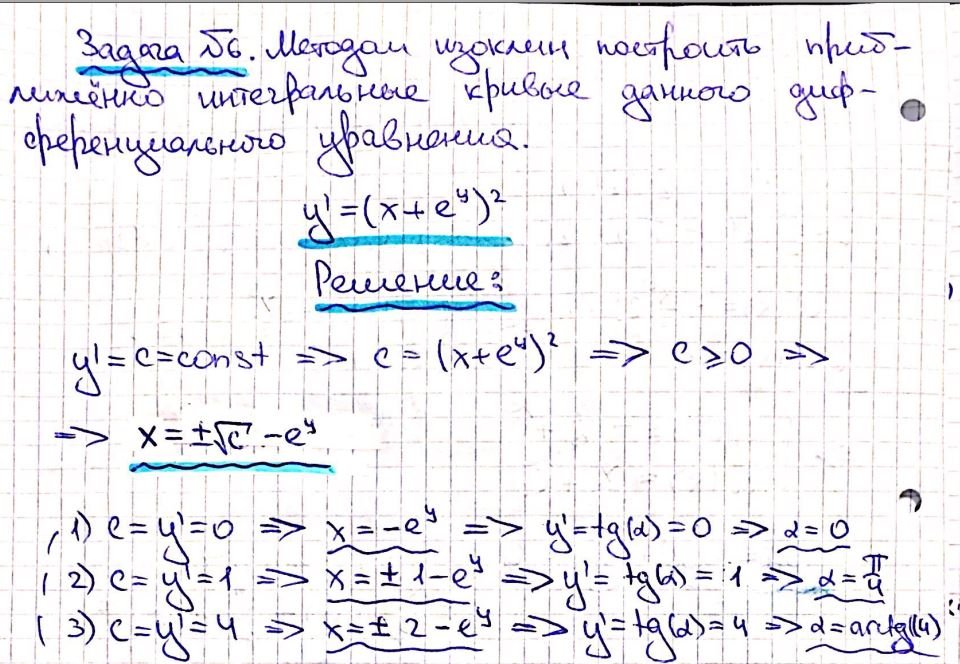 Задача №6. Методом изоклин построить приб-
лижённо интегральные кривые данного диф-
ференциального уравнения.
y' = (x + e^y)^2
Решение:
y' = c = const => c = (x + e^y)^2 => c ≥ 0 =>
=> x = ±√c - e^y
1) c = y' = 0 => x = -e^y => y' = tg(α) = 0 => α = 0
2) c = y' = 1 => x = ± 1 - e^y => y' = tg(α) = 1 => α = π/4
3) c = y' = 4 => x = ± 2 - e^y => y' = tg(α) = 4 => α = arctg(4)